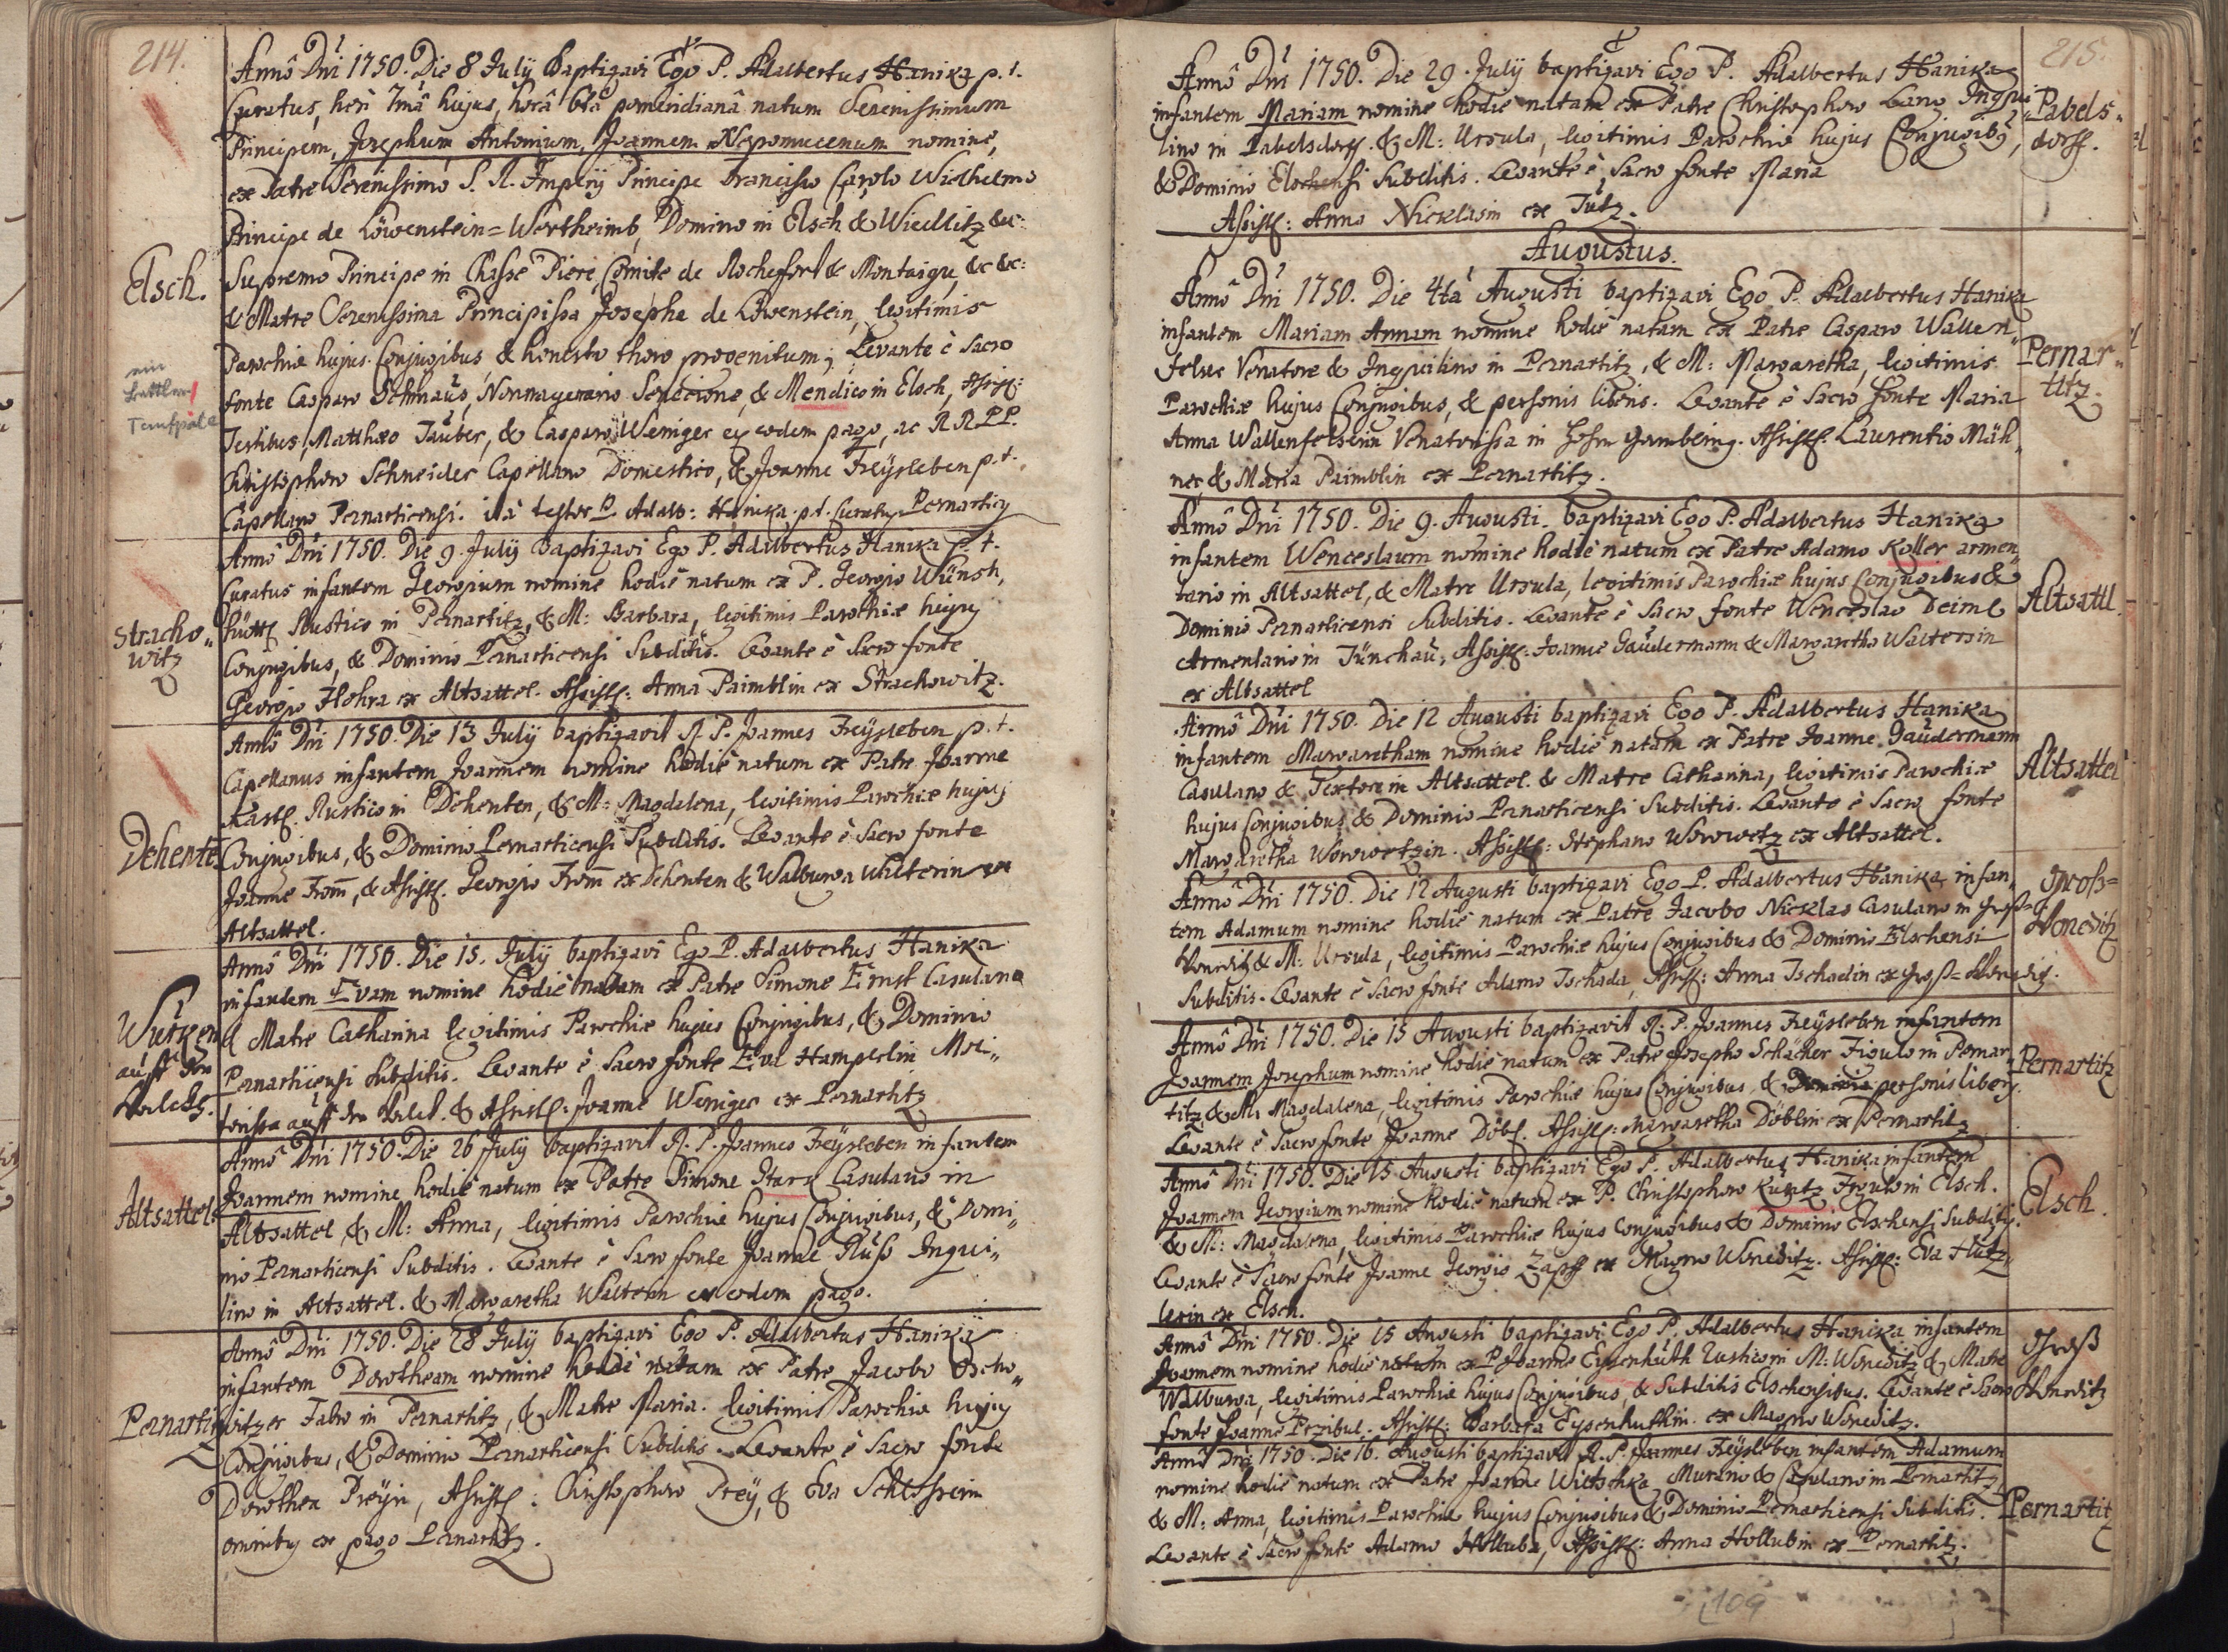 214.
Annô Dni 1750. Die 8 July Baptizavi Ego P. Adalbertus Hanika p. t.
Curatus, heri 7mâ hujus, horâ 6tâ pomeridianâ natum Serenissimum
Principem, Josephum Antonium, Joannem Nepomucenum nomine,
ex Patre Serenissimo S. R. Imperij Principe Francisco Carolo Wilhelmo
Principe de Löwenstein=Wertheimb, Domino in Elsch & Wiedlitz &c:
Elsch.
Supremo Principe in Chasse Piere, Comite de Rochefort & Montaigu, &c &c:
& Matre Serenissima Principissa Josepha de Löwenstein, legitimis
Parochiæ hujus Conjugibus, & honesto thoro progenitum; Levante è Sacro
fonte Casparo Schnaus, Nonnagenario Senecione, & Mendico in Elsch, Assist:
Testibus, Matthæo Tauber, & Casparo Weniger ex eodem pago, ac RR.PP.
Christophoro Schneider Capellano Domestico, & Joanne Freysleben p. t.
Capellano Pernarticensi. ità testor P. Adalb: Hanika p. t. Curatus Pernartiz
Anno Dni 1750. Die 9. July Baptizavi Ego P. Adalbertus Hanika p. t.
Curatus infantem Georgium nomine hodiè natum ex P. Georgio Wünsch,
Stracho„
witz
Rustico in Pernartitz, & M: Barbara, legitimis Parochiæ hujus
Conjugibus, & Dominio Pernarticensi Subditis. Levante è Sacro fonte
Georgio Hohra ex Altsattel. Assist: Anna Paimblin ex Strachowitz.
Annô Dni 1750. Die 13 July baptizavit R. P. Joannes Freysleben p. t.
Capellanus infantem Joannem nomine hodiè natum ex Patre Joanne
Kastl. Rustico in Dehenten, & M: Magdalena, legitimis Parochiæ hujus
Dehente
Conjugibus, & Dominio Pernarticensi Subditis. Levante è Sacro fonte
Joanne From, & Assist. Georgio From ex Dehenten & Walburga Walterin ex
Altsattel.
Annô Dni 1750. Die 15. July baptizavi Ego P. Adalbertus Hanika
infantem Evam nomine hodiè natam ex Patre Simone Ernst Casulano
& Matre Catharina legitimis Parochiæ hujus Conjugibus, & Dominio
Pernarticensi Subditis. Levante è Sacro fonte Eva Hamperlin Moi„
auff den & Assist: Joanne Weniger ex Pernartitz
Anno Dni 1750. Die 26 July baptizavit R. P. Joannes Freysleben infantem
Joannem nomine hodiè natum ex Patre Simone Starx Casulano in
Altsattel.
Altsattel, & M: Anna, legitimis Parochiæ hujus Conjugibus, & Domi„
nio Pernarticensi Subditis. Levante è Sacro fonte Joanne Russ Inqui„
lino in Altsattel. & Margaretha Walterin ex eodem pago.
Annô Dni 1750. Die 28 July baptizavi Ego P. Adalbertus Hanika
infantem Dorotheam nomine hodiè natam ex Patre Jacobo Oscho„
Pernartitz
witzer Fabro in Pernartitz, & Matre Maria. legitimis Parochiæ hujus
Conjugibus, & Dominio Pernarticensi Subditis. Levante è Sacro fonte
Dorothea Preyin, Assist: Christophoro Prey, & Eva
omnibus ex pago Pernartitz.
215.
Annô Dni 1750. Die 29. July baptizavi Ego P. Adalbertus Hanika
infantem Mariam nomine hodiè natam ex Patre Christophoro Lang Inqui„
Pabels„
dorff.
lino in Pabelsdorff. & M: Ursula, legitimis Parochiæ hujus Conjugibus,
& Dominio Elschensi Subditis. Levante è Sacro fonte Maria
Assist: Anna Nicklasin ex Tutz.
Augustus.
Annô Dni 1750. Die 4tâ Augusti baptizavi Ego P. Adalbertus Hanika
infantem Mariam Annam nomine hodiè natam ex Patre Casparo Wallen„
Pernar„
titz.
felser Venatore & Inquilino in Pernartitz, & M: Margaretha, legitimis
Parochiæ hujus Conjugibus, & personis liberis. Levante è Sacro fonte Maria
Anna Wallenfelserin Venatorissa in. Assist: Laurentio Mäh„
ner & Maria Paimblin ex Pernartitz.
Annô Dni 1750. Die 9. Augusti. baptizavi Ego P. Adalbertus Hanika
infantem Wenceslaum nomine hodiè natum ex Patre Adamo Koller armen„
Altsattl.
tario in Altsattel, & Matre Ursula, legitimis Parochiæ hujus Conjugibus &
Dominio Pernarticensi Subditis. Levante è Sacro fonte Wenceslao Deiml
Armentario in Jünchau, Assist: Joanne Gaudermann & Margaretha Walterin
ex Altsattel
Annô Dni 1750. Die 12 Augusti baptizavi Ego P. Adalbertus Hanika
infantem Margaretham nomine hodiè natam ex Patre Joanne Gaudermann
Altsattel
Casulano & Textore in Altsattel. & Matre Catharina, legitimis Parochiæ
hujus Conjugibus & Dominio Pernarticensi Subditis. Levante è Sacro fonte
Margaretha Worowetzin. Assist: Stephano Worowetz ex Altsattel.
Annô Dni 1750. Die 12 Augusti baptizavi Ego P. Adalbertus Hanika infan„
Groß=
Woneditz
tem Adamum nomine hodiè natum ex Patre Jacobo Nicklas Casulano in Groß=
Woneditz & M: Ursula, legitimis Parochiæ hujus Conjugibus & Dominio Elschensi
Subditis. Levante è Sacro fonte Adamo Tschada, Assist: Anna Tschadin ex Groß=Woneditz.
Annô Dni 1750. Die 15 Augusti baptizavit R. P. Joannes Freysleben infantem
Joannem Josephum nomine hodiè natum ex Patre Josepho Schäcker Figulo in Pernar„
Pernartitz
titz & M: Magdalena, legitimis Parochiæ hujus Conjugibus & Dominio personis liberis.
Levante è Sacro fonte Joanne Döbl. Assist: Margaretha Döblin ex Pernartitz
Annô Dni 1750. Die 15 Augusti baptizavi Ego P. Adalbertus Hanika infantem
Joannem Georgium nomine hodiè natum ex P. Christophoro Kuntz Figulo in Elsch.
Elsch.
& M: Magdalena, legitimis Parochiæ hujus Conjugibus & Dominio Elschensi Subditis.
Levante è Sacro fonte Joanne Georgio Zapff ex Magno Woneditz. Assist: Eva Hutz„
lerin ex Elsch.
Annô Dni 1750. Die 15 Augusti baptizavi Ego P. Adalbertus Hanika infantem
Groß
Woneditz
Joannem nomine hodiè natum ex P. Joanne Eysenhuth Rustico in M: Woneditz & Matre
Walburga, legitimis Parochiæ hujus Conjugibus, & Subditis Elschensibus. Levante è Sacro
fonte Joanne Przibul. Assist: Barbara Eysenhuthin ex Magno Woneditz.
Anno Dni 1750. Die 16. Augusti baptizavit R. P. Joannes Freysleben infantem Adamum
nomine hodiè natum ex Patre Joanne Wietschka Murario & Casulano in Pernartitz,
& M: Anna, legitimis Parochiæ hujus Conjugibus & Dominio Pernarticensi Subditis.
Pernartitz
Levante è Sacro fonte Adamo Holluba, Assist: Anna Hollubin ex Pernartitz.
109